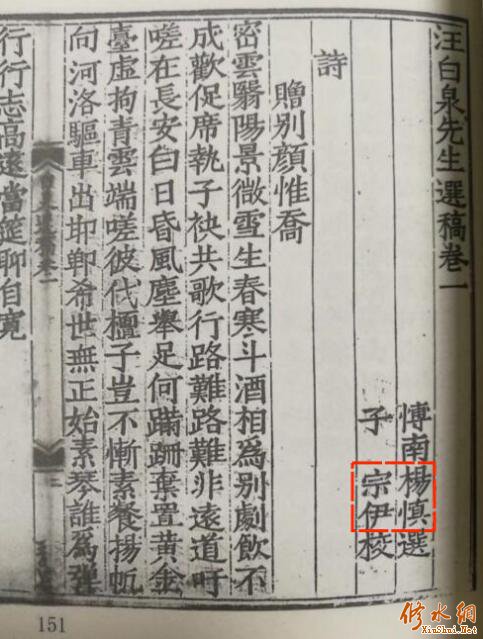 汪白泉先生選稿卷一
博南楊慎選
子 宗伊校
詩
贈別顏惟喬
密雲翳陽景微雪生春寒斗酒相爲別劇飲不
成歡促席執子袂共歌行路難路難非遠道吁
嗟在長安白日昏風塵舉足何蹣跚棄置黃金
臺虛拘青雲端嗟彼代檀子豈不慚素餐揚帆
向河洛驅車出邯鄲希世無正始素琴誰爲彈
行行志高遠當筵聊自寬
151
修水網
XiuShui.Net